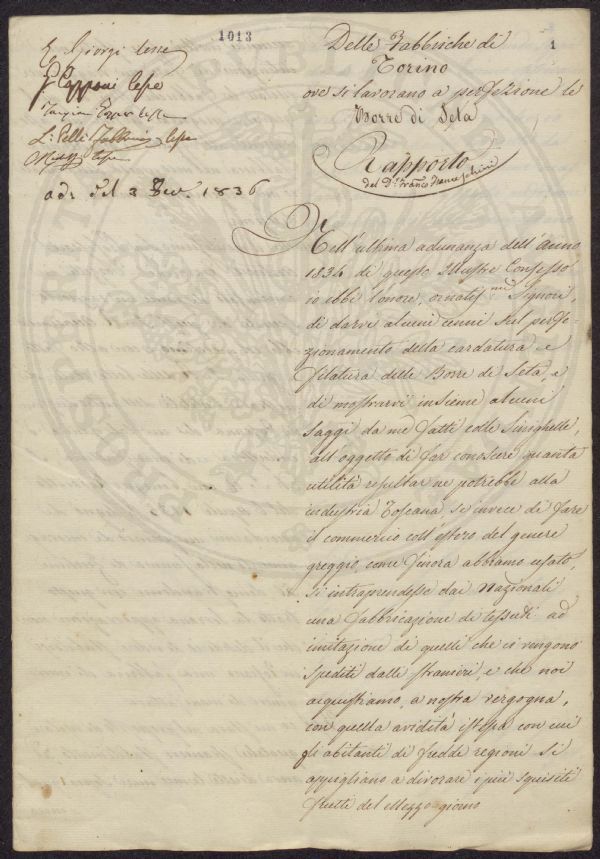 1013
1
E. Giorgi
G Capponi
L. Pelli Fabbroni
ad. del 2 1836
Delle Fabbriche di
Torino
ove si lavorano a perfezione le
Borre di Seta
Rapporto
del Dr. Franco
Nell'ultima adunanza dell'Anno
1834 di questo Illustre Consesso
io ebbi l'onore, ornatissmi Signori,
di darvi alcuni cenni sul perfe-
zionamento della cardatura e
filatura delle Borre di Seta, e
di mostrarvi insieme alcuni
saggi da me fatti colle Sinighelle,
all'oggetto di far conoscere quanta
utilità resultar ne potrebbe alla
industria Toscana, se invece di fare
il commercio coll'estero del genere
greggio, come finora abbiamo usato,
si intraprendesse dai Nazionali
una fabbricazione di tessuti ad
imitazione di quelli che ci vengono
spediti dalli stranieri, e che noi
acquistiamo, a nostra vergogna,
con quella avidità istessa con cui
gli abitanti di fredde regioni si
appigliano a divorare i più squisiti
frutti del Mezzo-giorno